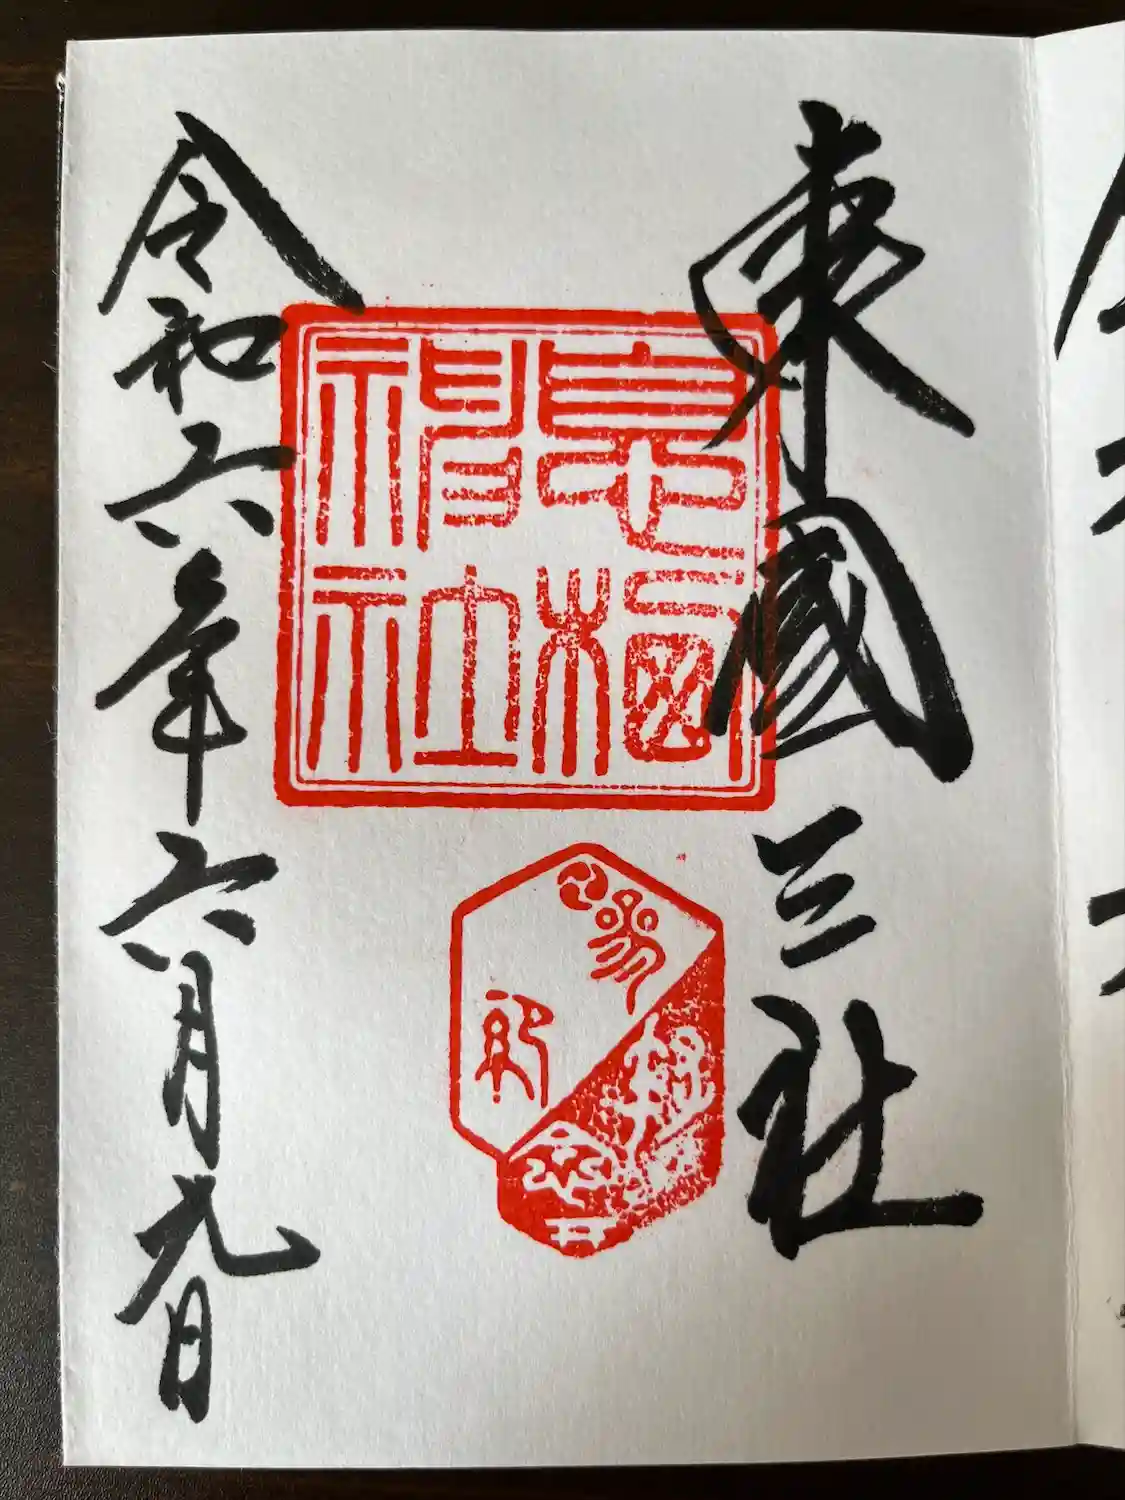 東國三社
息栖
神社
令和六年六月九日